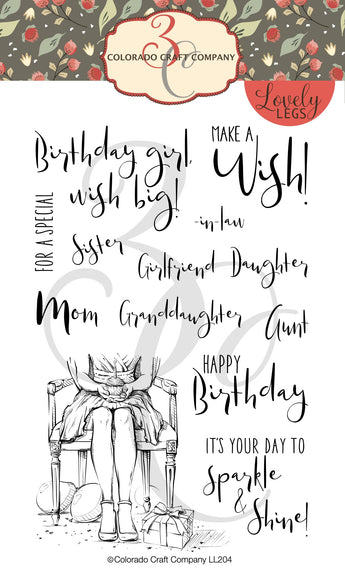 3C
COLORADO CRAFT COMPANY
Lovely
LEGS
Birthday girl,
wish big!
MAKE A
Wish!
FOR A SPECIAL
Sister
-in-law
Girlfriend Daughter
Mom Granddaughter Aunt
HAPPY
Birthday
IT'S YOUR DAY TO
Sparkle
&
Shine!
©Colorado Craft Company LL204